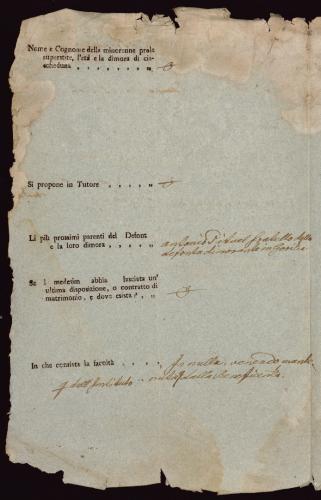 Nome e Cognome della minorenne prole
superstite, l'età e la dimora di cia-
scheduna , , , , , , , ,
Si propone in Tutore , , , , ,
Li più prossimi parenti del Defont
e la loro dimora, , , , , , antonio fratello della
defonta
Se l medesim abbia lasciata un'
ultima disposizione, o contratto di
matrimonio, e dove esista? , ,
In che consista la facoltà . , , , in nulla,
dell' Instituto della Beneficenza